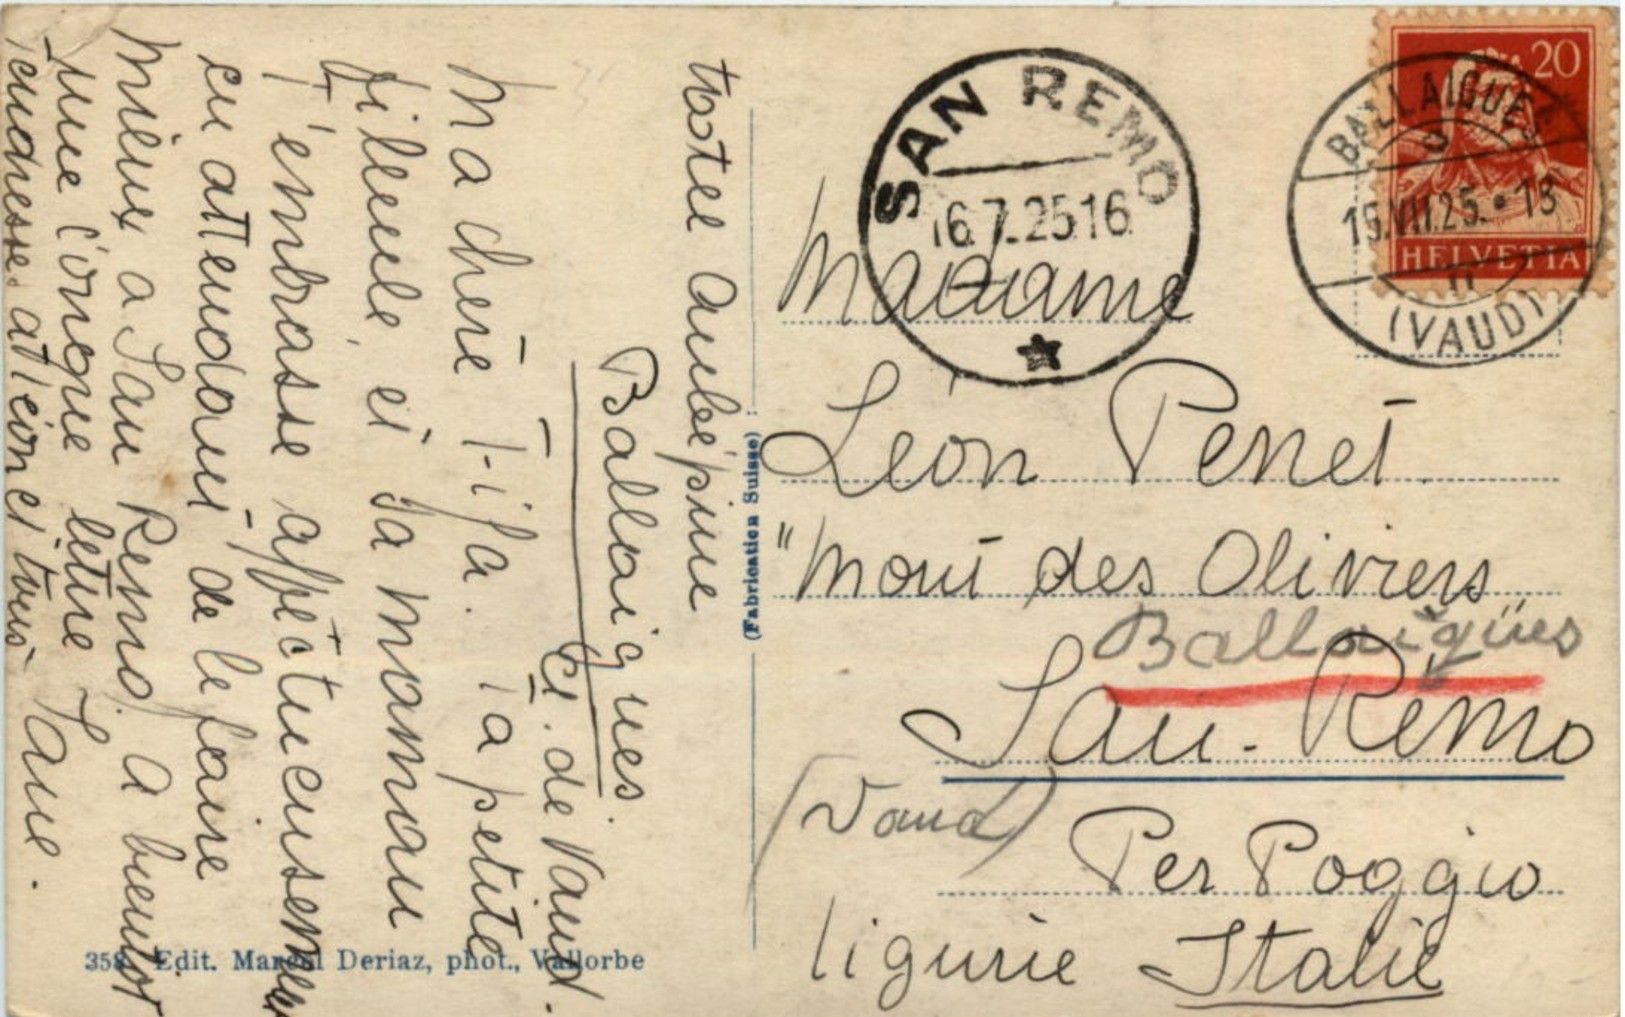 Hotel Aubépine
Ballaigues
Ct. de Vaud.
Ma chère Titia. Ta petite
filleule, et sa maman
t'embrasse affectueusement
en attendant de le faire
mieux a San Remo. A bientot
une longue lettre
tendresses
358 Edit. Marcel Deriaz, phot., Vallorbe
(Fabrication Suisse)
SAN REMO
16.7.25 16
20
HELVETIA
BALLAIGUES
VII.25.
(VAUD)
Madame
Léon Penet
"Mont des Oliviers
Ballaigues
San-Remo
(Vaud)
Per Poggio
ligurie Italie